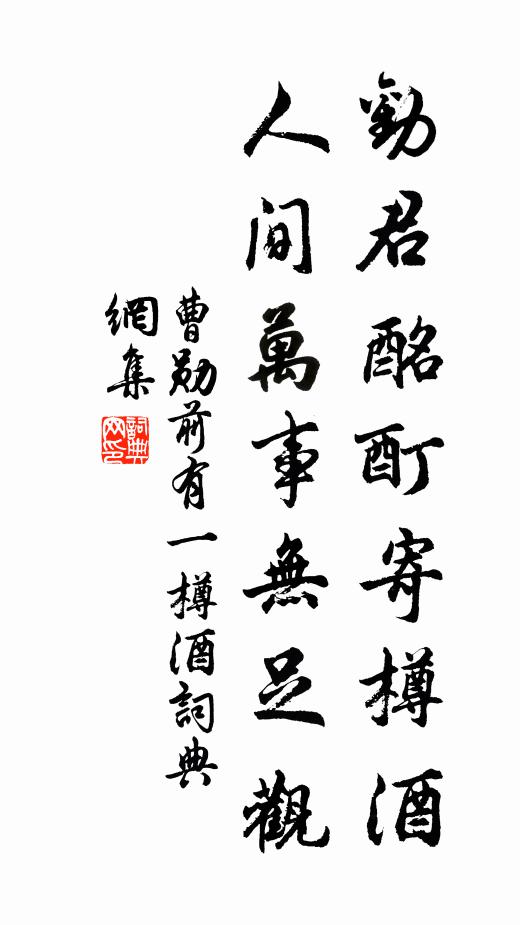 勸君酩酊寄樽酒
人間萬事無足觀
曹勛前有一樽酒詞典
網集
詞典
网印